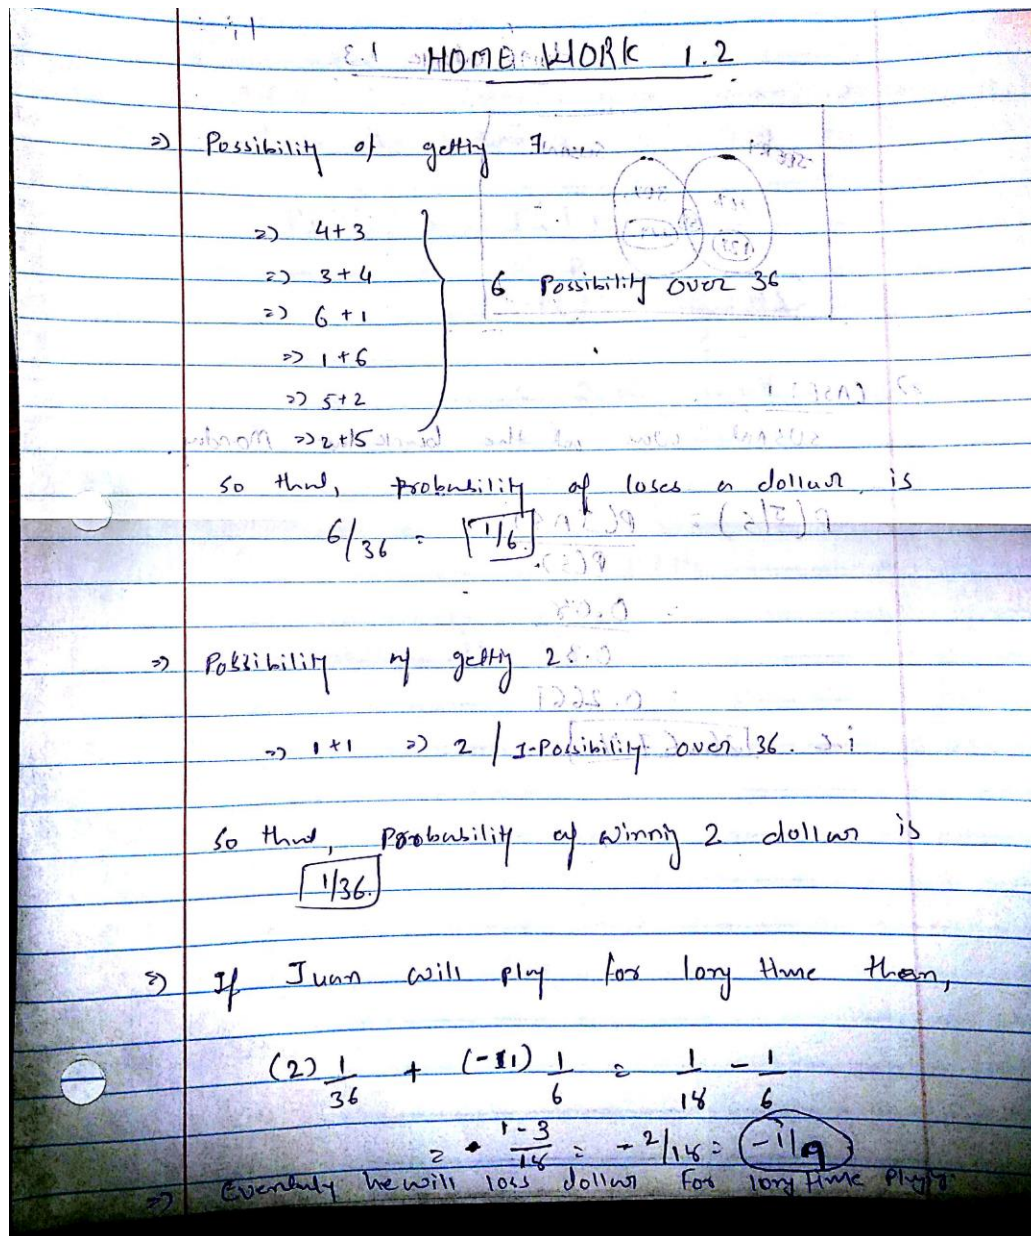 HOME WORK 1.2
=> Possibility of getting 7
=> 4+3
=> 3+4
=> 6+1
=> 1+6
=> 5+2
=> 2+5
6 Possibility over 36
so that, probability of loses a dollar is
6/36 = 1/6
=> Possibility of getting 2
=> 1+1 => 2 / 1-Possibility over 36.
so that, Probability of winning 2 dollar is
1/36.
=> If Juan will play for long time then,
(2) 1/36 + (-1) 1/6 = 1/18 - 1/6
= 1-3/18 = -2/18 = -1/9
=> Evenduly he will loss dollar for long time